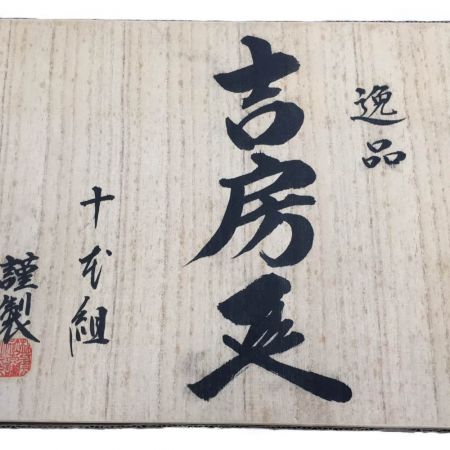 逸品
吉房延
十本組
謹製